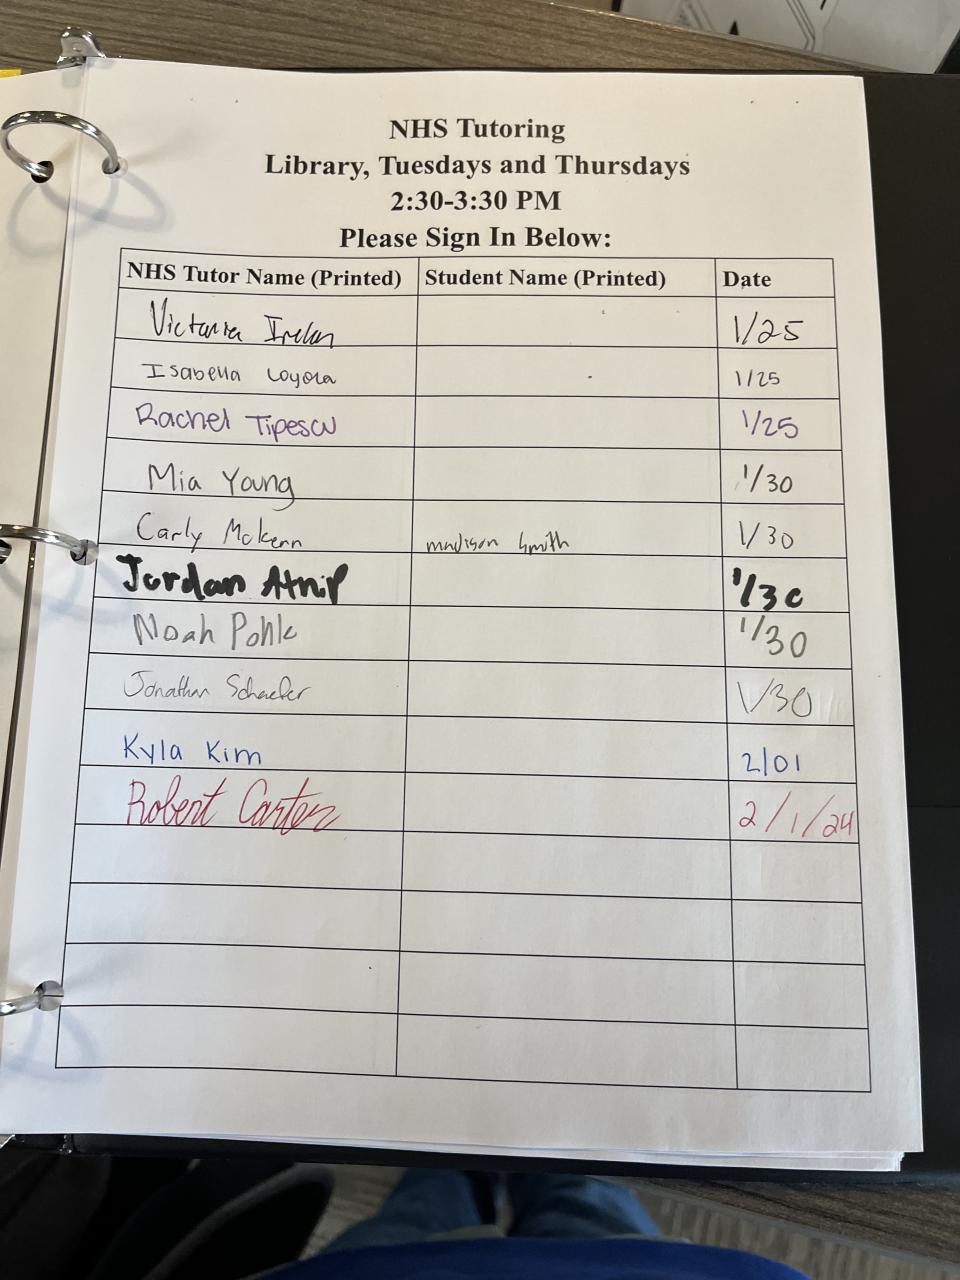 NHS Tutoring
Library, Tuesdays and Thursdays
2:30-3:30 PM
Please Sign In Below:
NHS Tutor Name (Printed) Student Name (Printed) Date
Victoria 1/25
Isabella Loyola 1/25
Rachel Tipescu 1/25
Mia Young 1/30
Carly McKenn Madison Smith 1/30
Jordan Atnip 1/30
Noah Pohlc 1/30
Jonathan Schaefer 1/30
Kyla Kim 2/01
Robert Carter 2/1/24